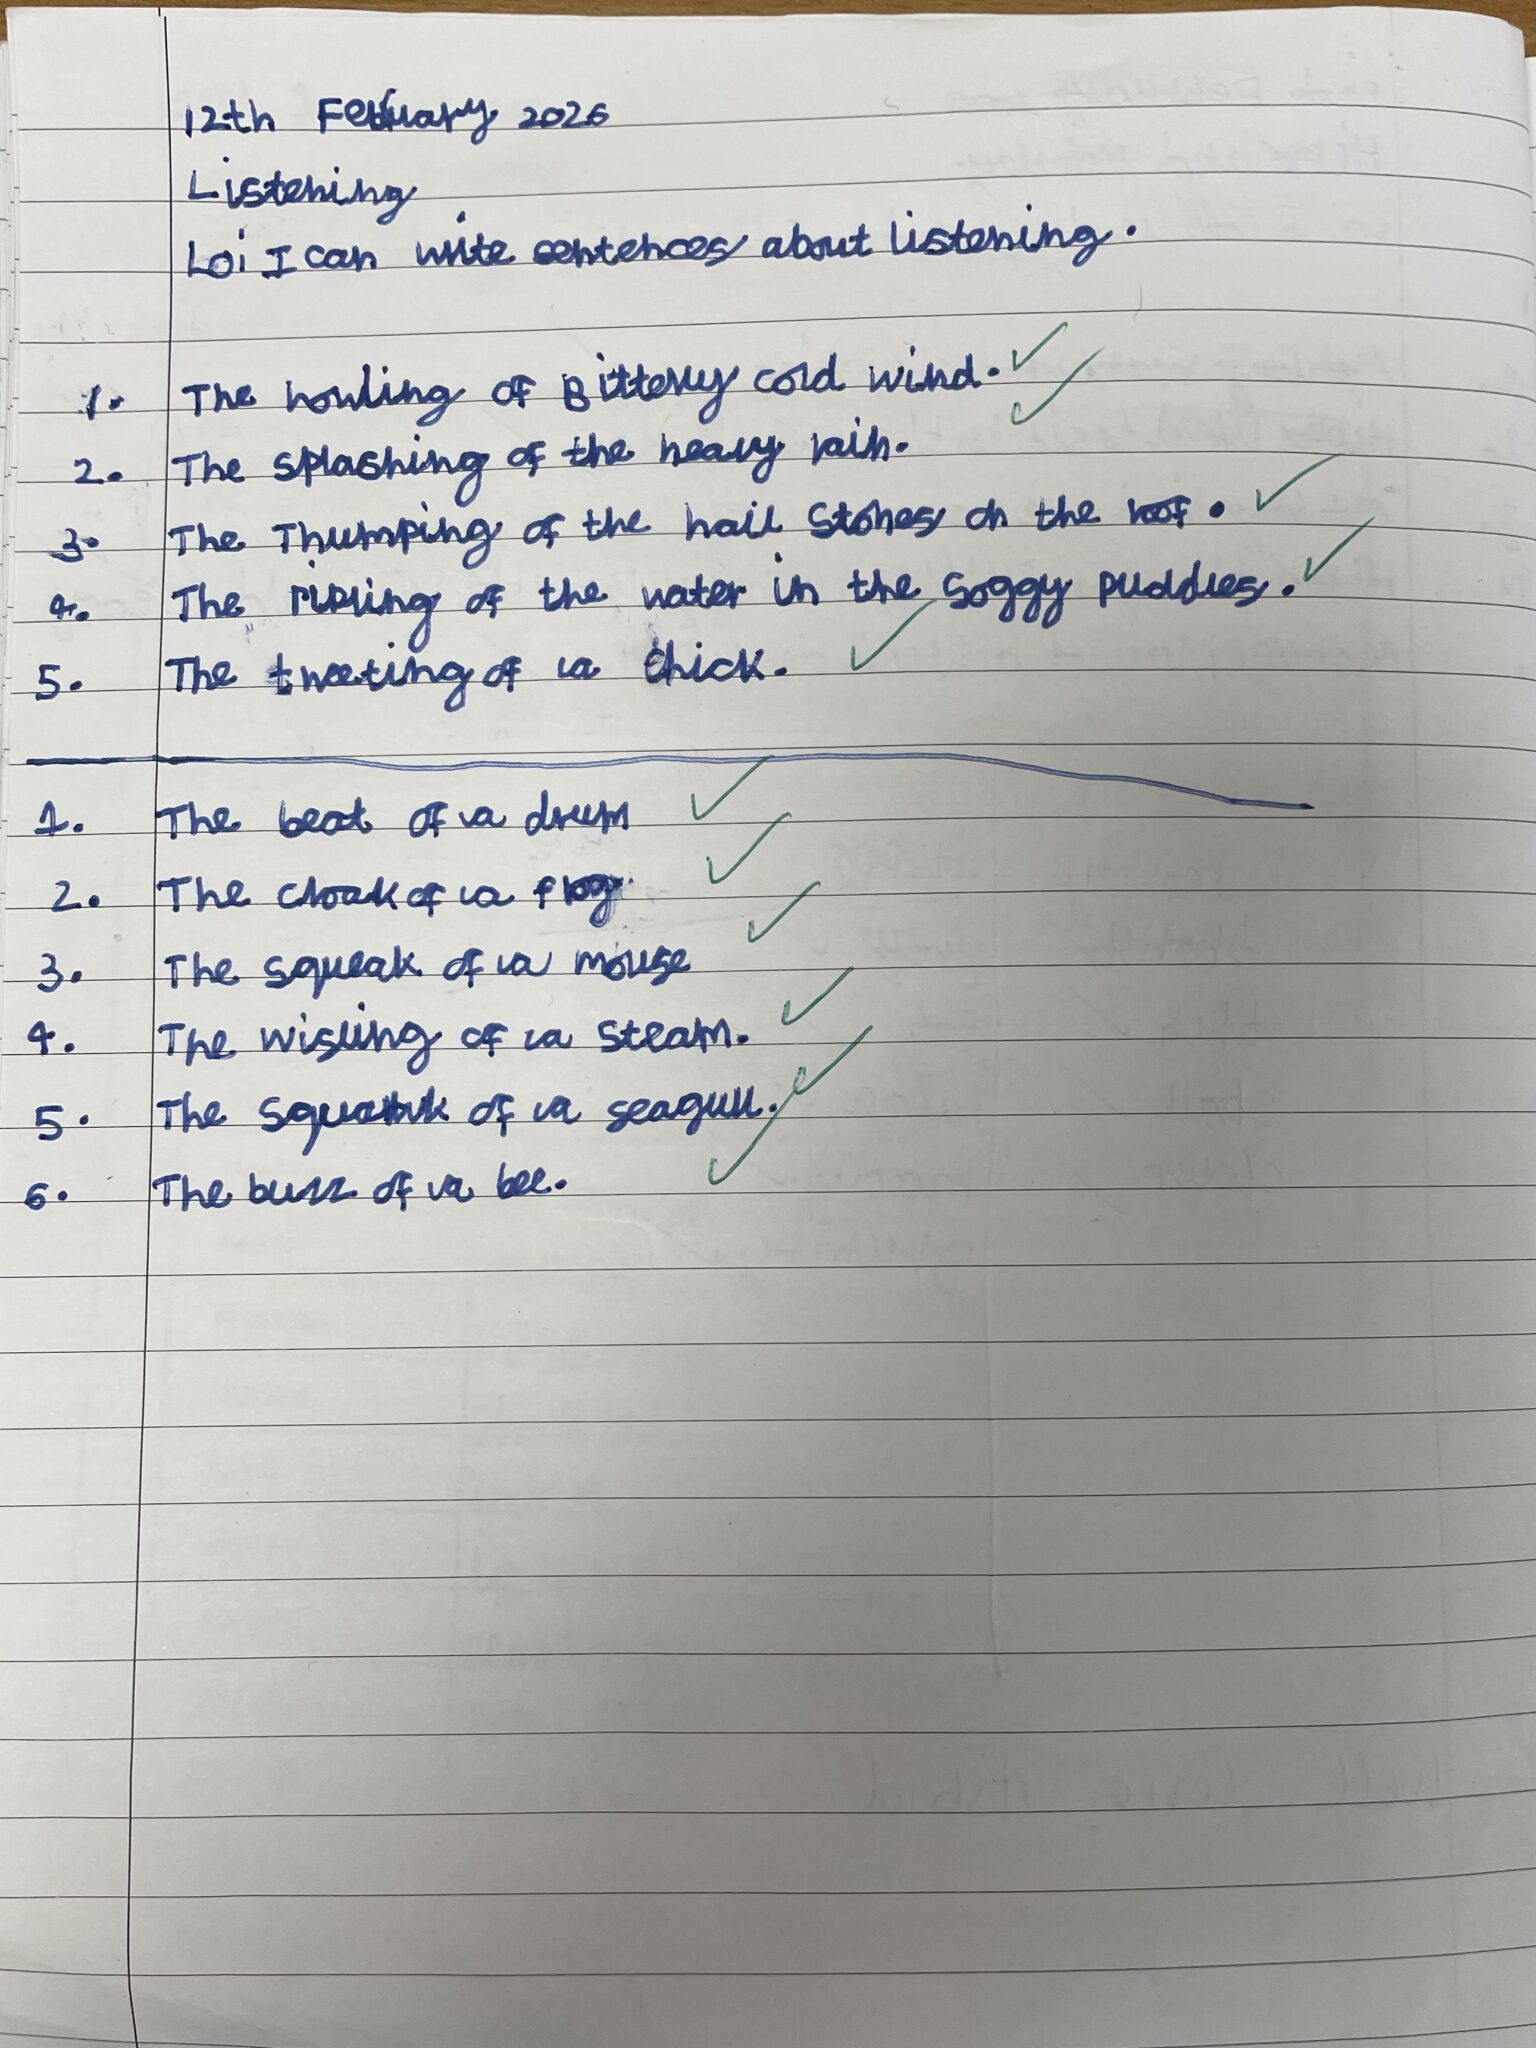 12th February 2026
Listening
Loi I can write sentences about listening.
1. The howling of Bitterly cold wind.
2. The splashing of the heavy rain.
3. The Thumping of the hail stones on the roof.
4. The ripling of the water in the soggy puddles.
5. The tweeting of a chick.
1. The beat of a drum
2. The croak of a frog.
3. The squeak of a mouse
4. The wisling of a steam.
5. The squawk of a seagull.
6. The buzz of a bee.